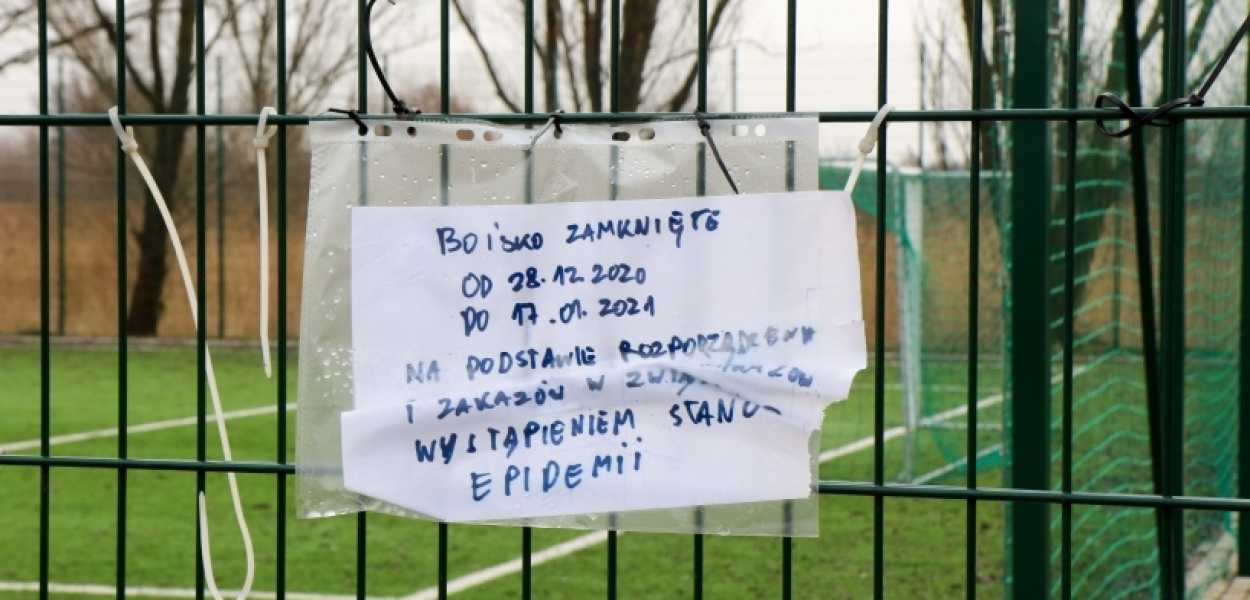 BOISKO ZAMKNIĘTE
OD 28.12.2020
DO 17.01.2021
NA PODSTAWIE ROZPORZĄDZENIA
I ZAKAZÓW W
WYSTĄPIENIEM STANU
EPIDEMII